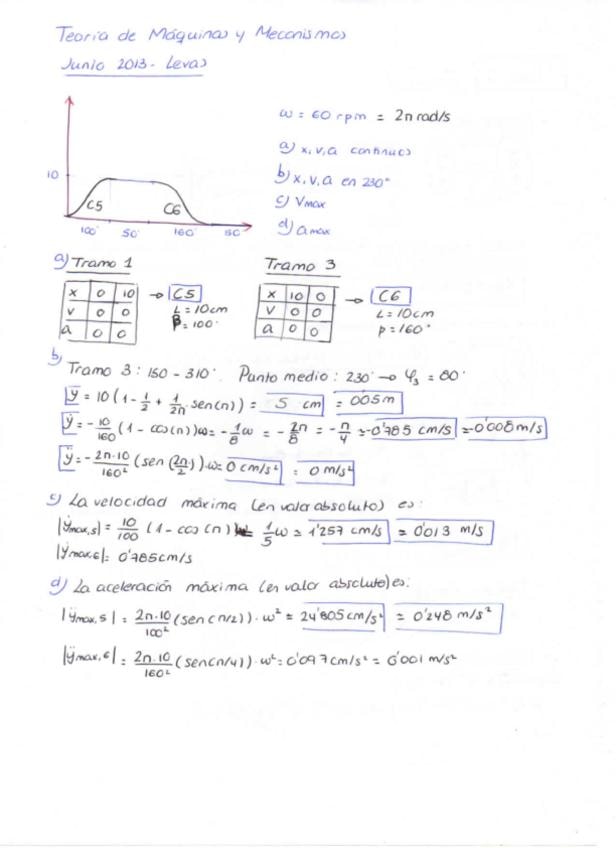 Teoría de Máquinas y Mecanismos
Junio 2013 - Levas
ω = 60 rpm = 2π rad/s
a) x, v, a continuos
b) x, v, a en 230°
c) Vmax
d) amax
10
C5 C6
100° 50° 160° 50°
a) Tramo 1
x 0 10
v 0 0
a 0 0
→ C5
L = 10cm
β = 100°
Tramo 3
x 10 0
v 0 0
a 0 0
→ C6
L = 10cm
β = 160°
b) Tramo 3: 150 - 310°. Punto medio: 230° → φ₃ = 80°
y = 10 (1 - 1/2 + 1/2π · sen(π)) = 5 cm = 0'05m
ẏ = - 10/160 (1 - cos(π))ω = - 1/8 ω = - 2π/8 = - π/4 = -0'785 cm/s = -0'008 m/s
ÿ = - 2π·10/160² (sen (2π/2)) · ω = 0 cm/s² = 0 m/s²
c) La velocidad máxima (en valor absoluto) es:
|ẏmax,5| = 10/100 (1 - cos(π)) = 1/5 ω = 1'257 cm/s = 0'013 m/s
|ẏmax,6| = 0'785cm/s
d) La aceleración máxima (en valor absoluto) es:
|ÿmax,5| = 2π·10/100² (sen(π/2)) · ω² = 24'805cm/s² = 0'248 m/s²
|ÿmax,6| = 2π·10/160² (sen(π/4)) · ω² = 0'097cm/s² = 0'001 m/s²